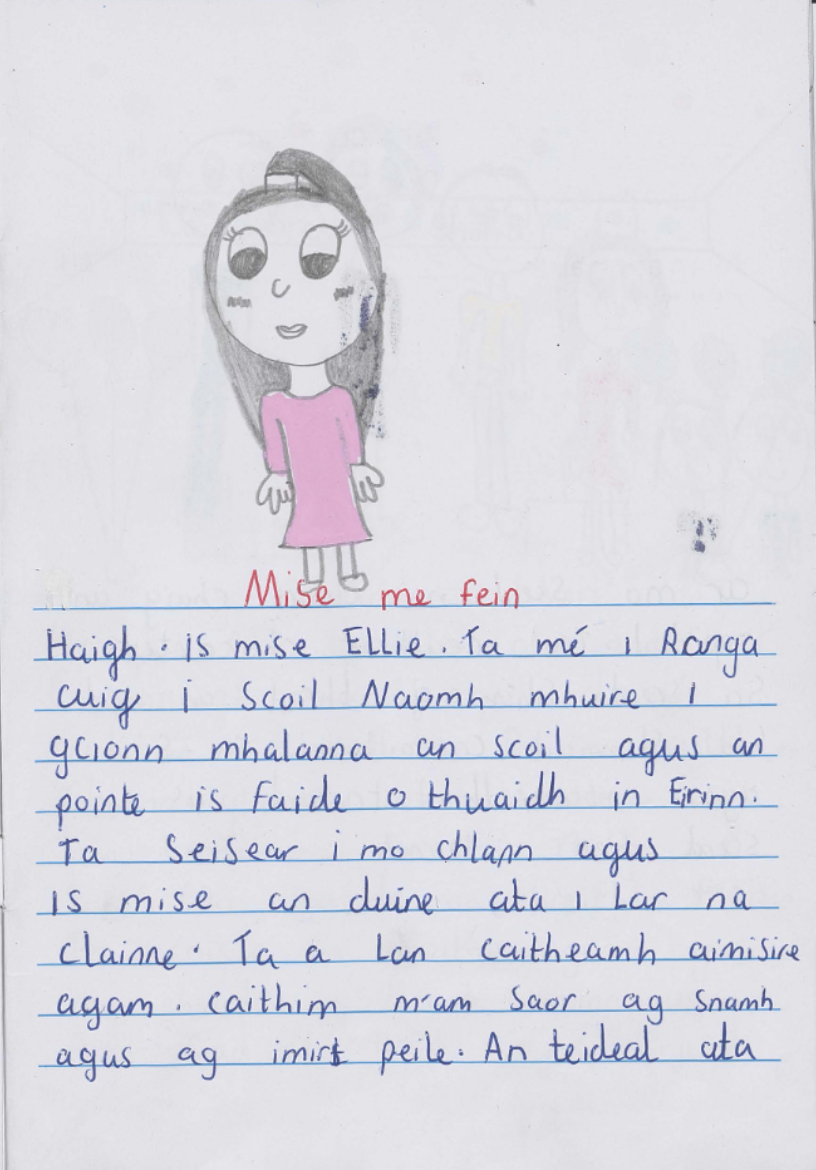 Mise me fein
Haigh. is mise Ellie. Ta mé i Ranga
cuig i Scoil Naomh mhuire i
gcionn mhalanna an scoil agus an
pointe is faide o thuaidh in Eirinn.
Ta Seisear i mo chlann agus
is mise an duine ata i Lar na
clainne. Ta a Lan caitheamh aimisire
agam. caithim m'am Saor ag Snamh
agus ag imirt peile. An teideal ata